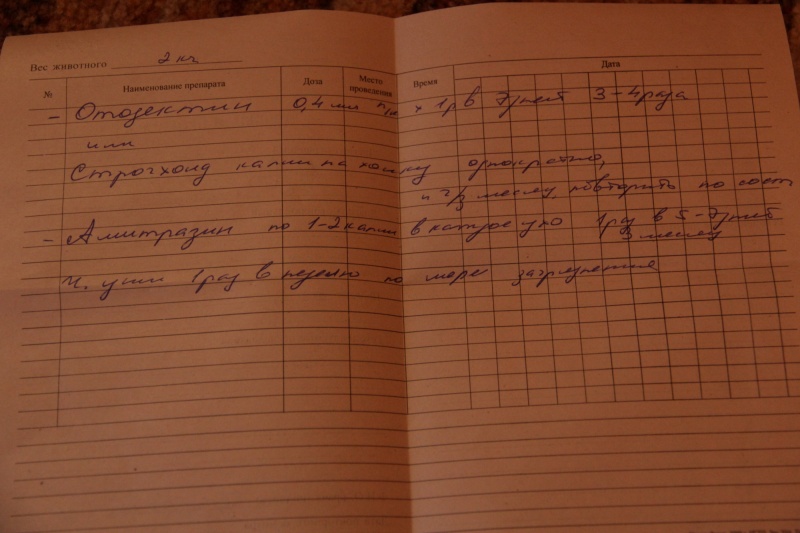 Вес животного 2 кг
№ Наименование препарата Доза Место проведения Время Дата
- Отодектин 0,4 мл п/к × 1 р в 7 дней 3-4 раза
или
Строгхолд капли на холку однократно,
и ч/з месяц повторить по сост
- Амитразин по 1-2 капли в каждое ухо 1 раз в 5-7 дней
3 месяц
Ч. уши 1 раз в неделю по мере загрязнения